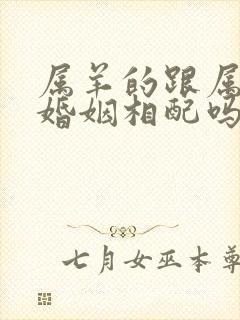 属羊的跟属
婚姻相配吗
七月女巫本尊